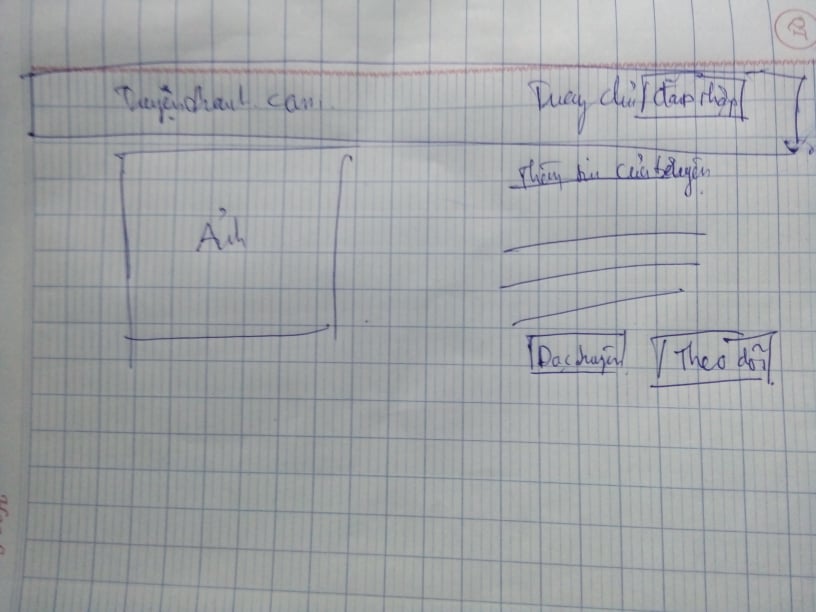 Truyện tranh
Trang chủ đăng nhập
Thông tin của truyện
Ảnh
Đọc truyện Theo dõi